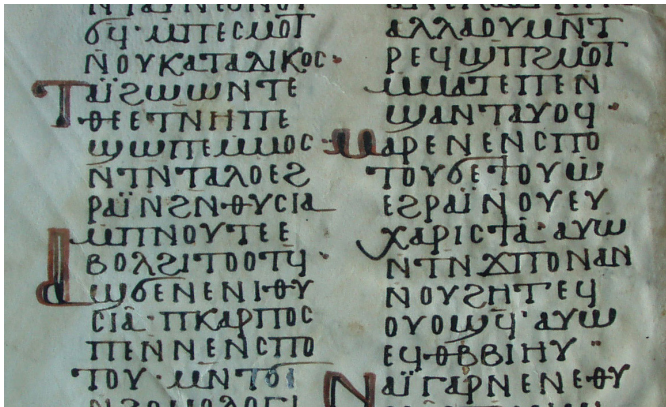 ϭϥ·ⲙⲡⲉⲥⲙⲟⲧ
ⲛⲟⲩⲕⲁⲧⲁⲗⲓⲕⲟⲥ·
ⲧⲁⲓ̈ϩⲱⲱⲛⲧⲉ
ⲑⲉⲉⲧⲛⲏⲡⲉ
ϣⲱⲡⲉⲙⲙⲟⲥ·
ⲛⲧⲛⲧⲁⲗⲟⲉϩ
ⲣⲁⲓ̈ⲛϩⲛⲑⲩⲥⲓⲁ
ⲙⲡⲛⲟⲩⲧⲉⲉ
ⲃⲟⲗϩⲓⲧⲟⲟⲧϥ·
ⲁϣϭⲉⲛⲉⲛⲓⲑⲩ
ⲥⲓⲁ·ⲡⲕⲁⲣⲡⲟⲥ
ⲡⲉⲛⲛⲉⲛⲥⲡⲟ
ⲧⲟⲩ·ⲙⲛⲧϭⲓ
ⲛϩⲟⲙⲟⲗⲟⲅⲓ
ⲁⲗⲗⲁⲟⲩⲙⲛⲧ
ⲣⲉϥϣⲡϩⲙⲟⲧ
ⲙⲙⲁⲧⲉⲡⲉⲛ
ϣⲁⲛⲧⲁⲩⲟϥ·
ⲙⲁⲣⲉⲛⲉⲛⲥⲡⲟ
ⲧⲟⲩϭⲉⲧⲟⲩⲱ
ⲉϩⲣⲁⲓ̈ⲛⲟⲩⲉⲩ
ⲭⲁⲣⲓⲥⲧⲁ·ⲁⲩⲱ
ⲛⲧⲛϫⲡⲟⲛⲁⲛ
ⲛⲟⲩϩⲏⲧⲉϥ
ⲟⲩⲟϣϥ·ⲁⲩⲱ
ⲉϥⲑⲃⲃⲓⲏⲩ
ⲛⲁⲓ̈ⲅⲁⲣⲛⲉⲛⲉⲑⲩ